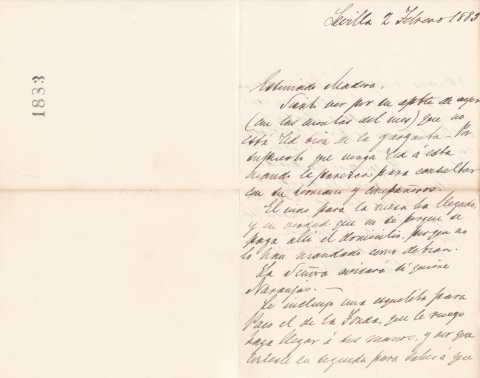 1883
Sevilla 2 Febrero 1883
Estimado Madera:
Siento ver por su aptble de ayer
(con las cuentas del mes) que no
está Ud bien de la garganta. Por
supuesto que venga Ud á esta
cuando le parezca para consultar
con su compañero.
El vino para la ha llegado,
y en verdad que no sé porque se
paga allí el domicilio, porque no
lo han mandado como debian.
La Señora avisará si quiere
Naranjas.—
Le incluyo una esquelita para
Paco el de la Fonda, que le ruego
haga llegar á sus manos, y ver que
conteste en seguida para saber á que